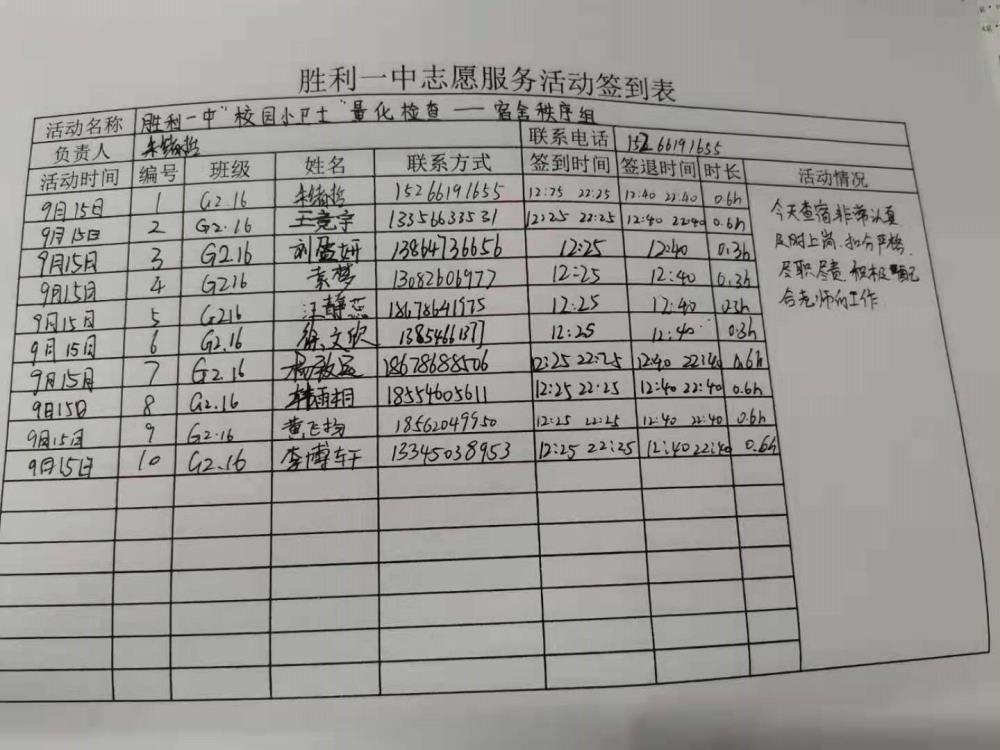 胜利一中志愿服务活动签到表
活动名称 胜利一中"校园小卫士"量化检查——宿舍秩序组
负责人 联系电话 15266191655
活动时间 编号 班级 姓名 联系方式 签到时间 签退时间 时长 活动情况
9月15日 1 G2.16 15266191655 12:25 22:25 12:40 22:40 0.6h
9月15日 2 G2.16 王竞宇 13356633531 12:25 22:25 12:40 22:40 0.6h
9月15日 3 G2.16 刘蕴妍 13864736656 12:25 12:40 0.3h
9月15日 4 G216 索梦 13082606977 12:25 12:40 0.3h
9月15日 5 G216 汪静蕊 18678641975 12:25 12:40 0.3h
9月15日 6 G2.16 徐文欣 1385466137 12:25 12:40 0.3h
9月15日 7 G2.16 18678688506 12:25 22:25 12:40 22:40 0.6h
9月15日 8 G2.16 韩雨桐 18554605611 12:25 22:25 12:40 22:40 0.6h
9月15日 9 G2.16 黄飞扬 18562049950 12:25 22:25 12:40 22:40 0.6h
9月15日 10 G2.16 李博轩 13345038953 12:25 22:25 12:40 22:40 0.6h
今天查宿非常认真
及时上岗、扣分严格、
尽职尽责、积极配
合老师的工作